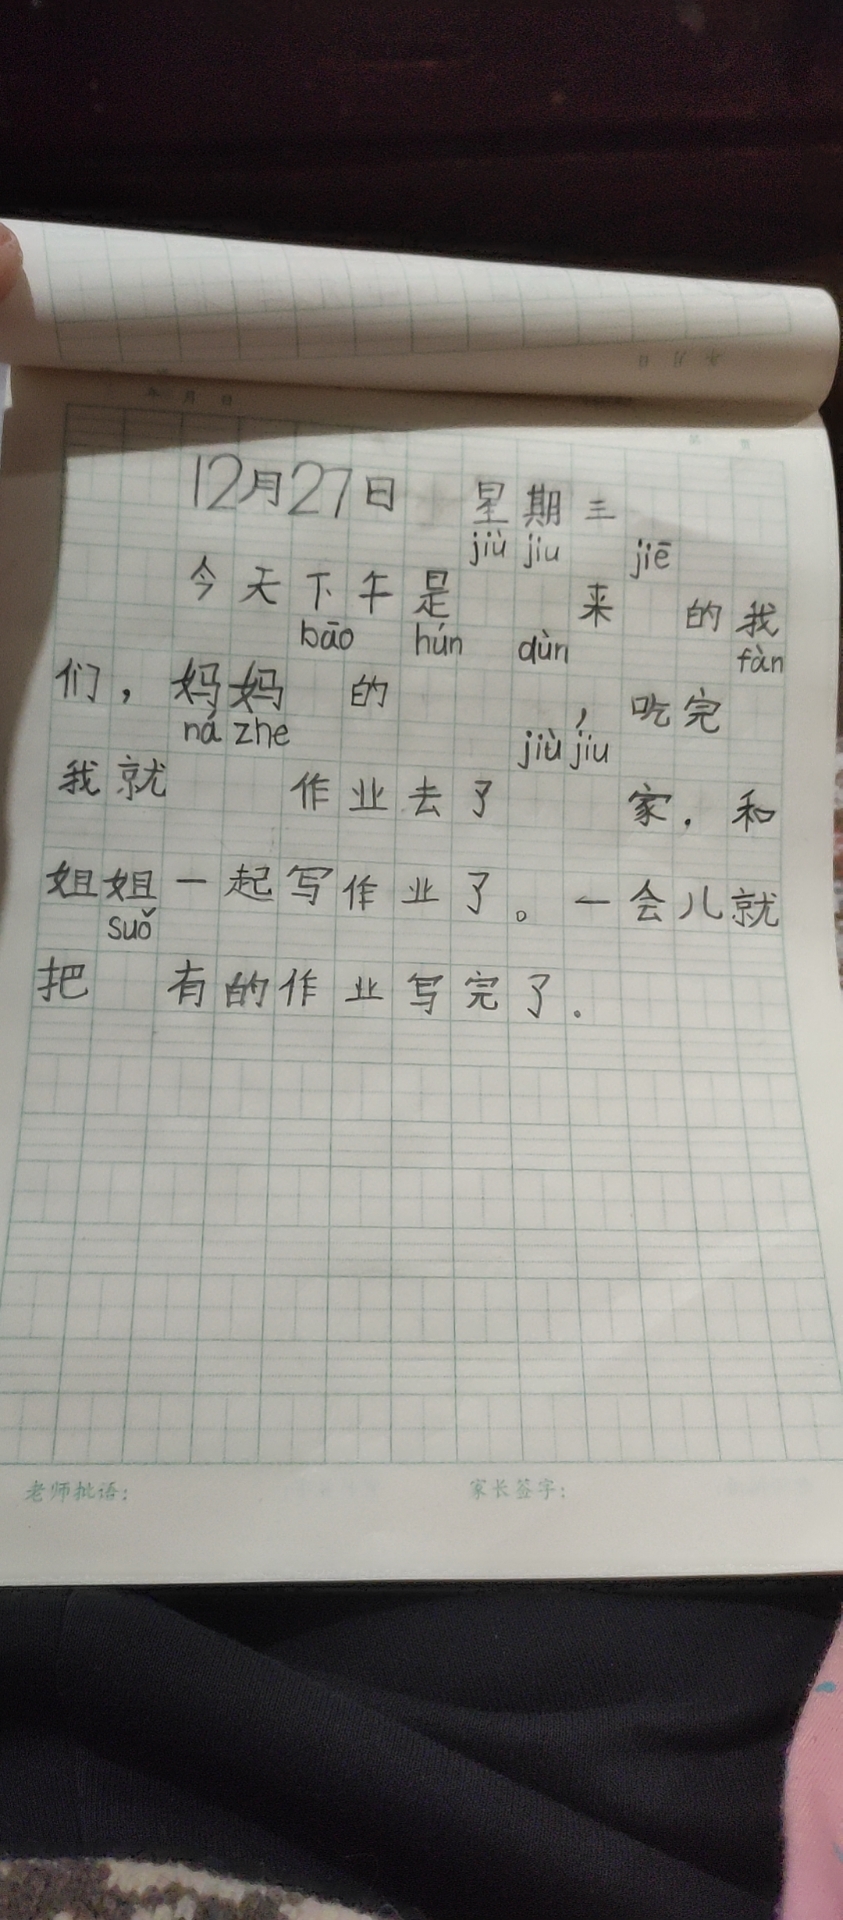 12月27日 星期三
jiù jiu jiē
今天下午是 来 的我
bāo hún dùn fàn
们，妈妈 的 ，吃完
ná zhe jiù jiu
我就 作业去了 家，和
姐姐一起写作业了。一会儿就
suǒ
把 有的作业写完了.
老师批语: 家长签字: